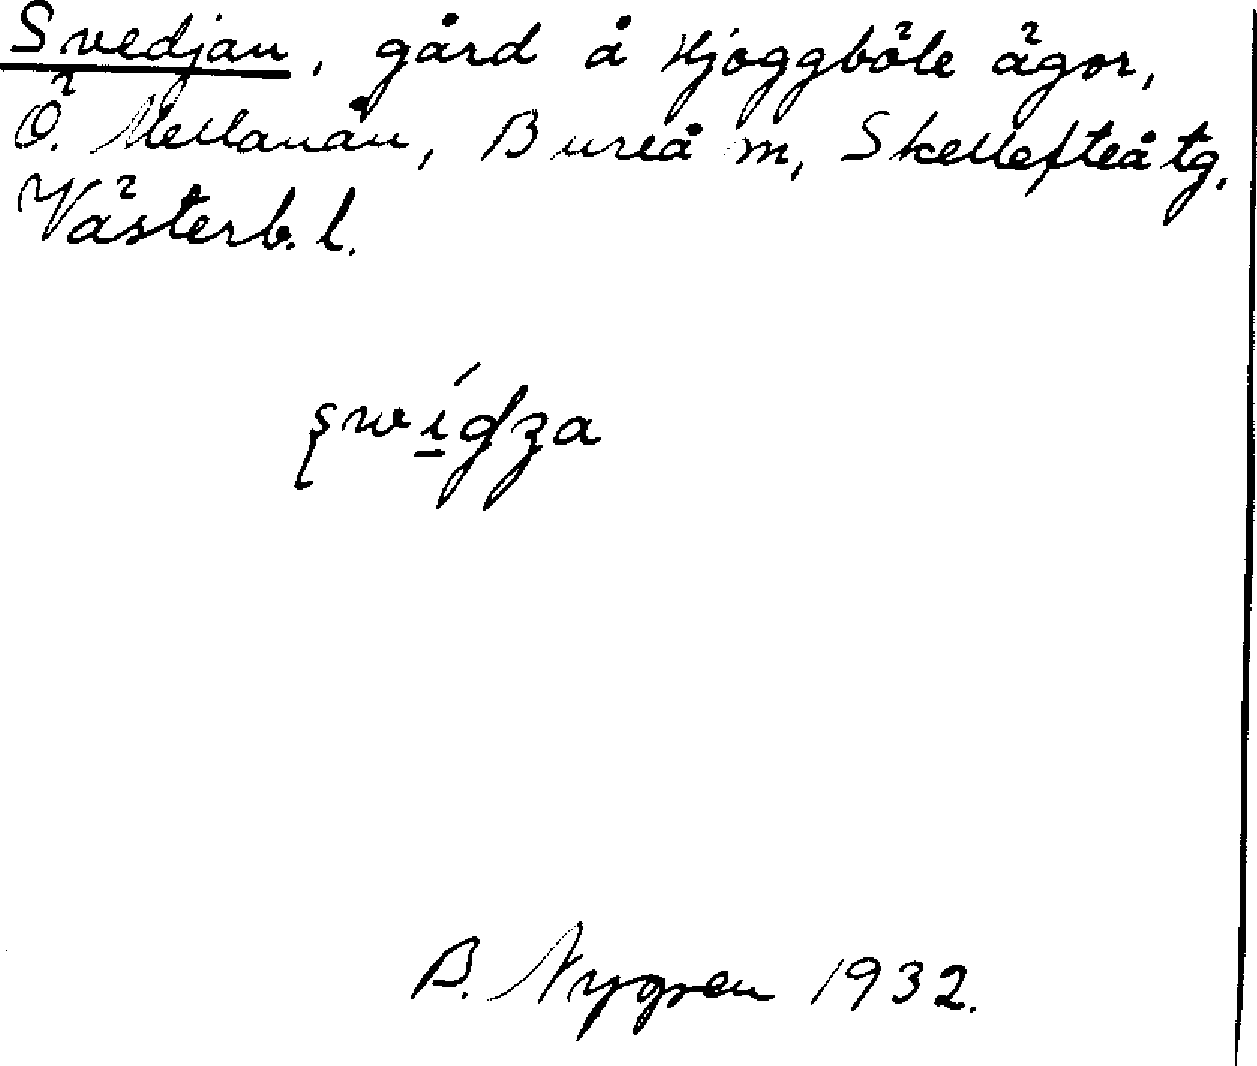 Svedjan, gård å Hjoggböle ägor,
Ö. Mellanån, Bureå m, Skellefteå tg.
Västerb. l.
B. Nygren 1932.